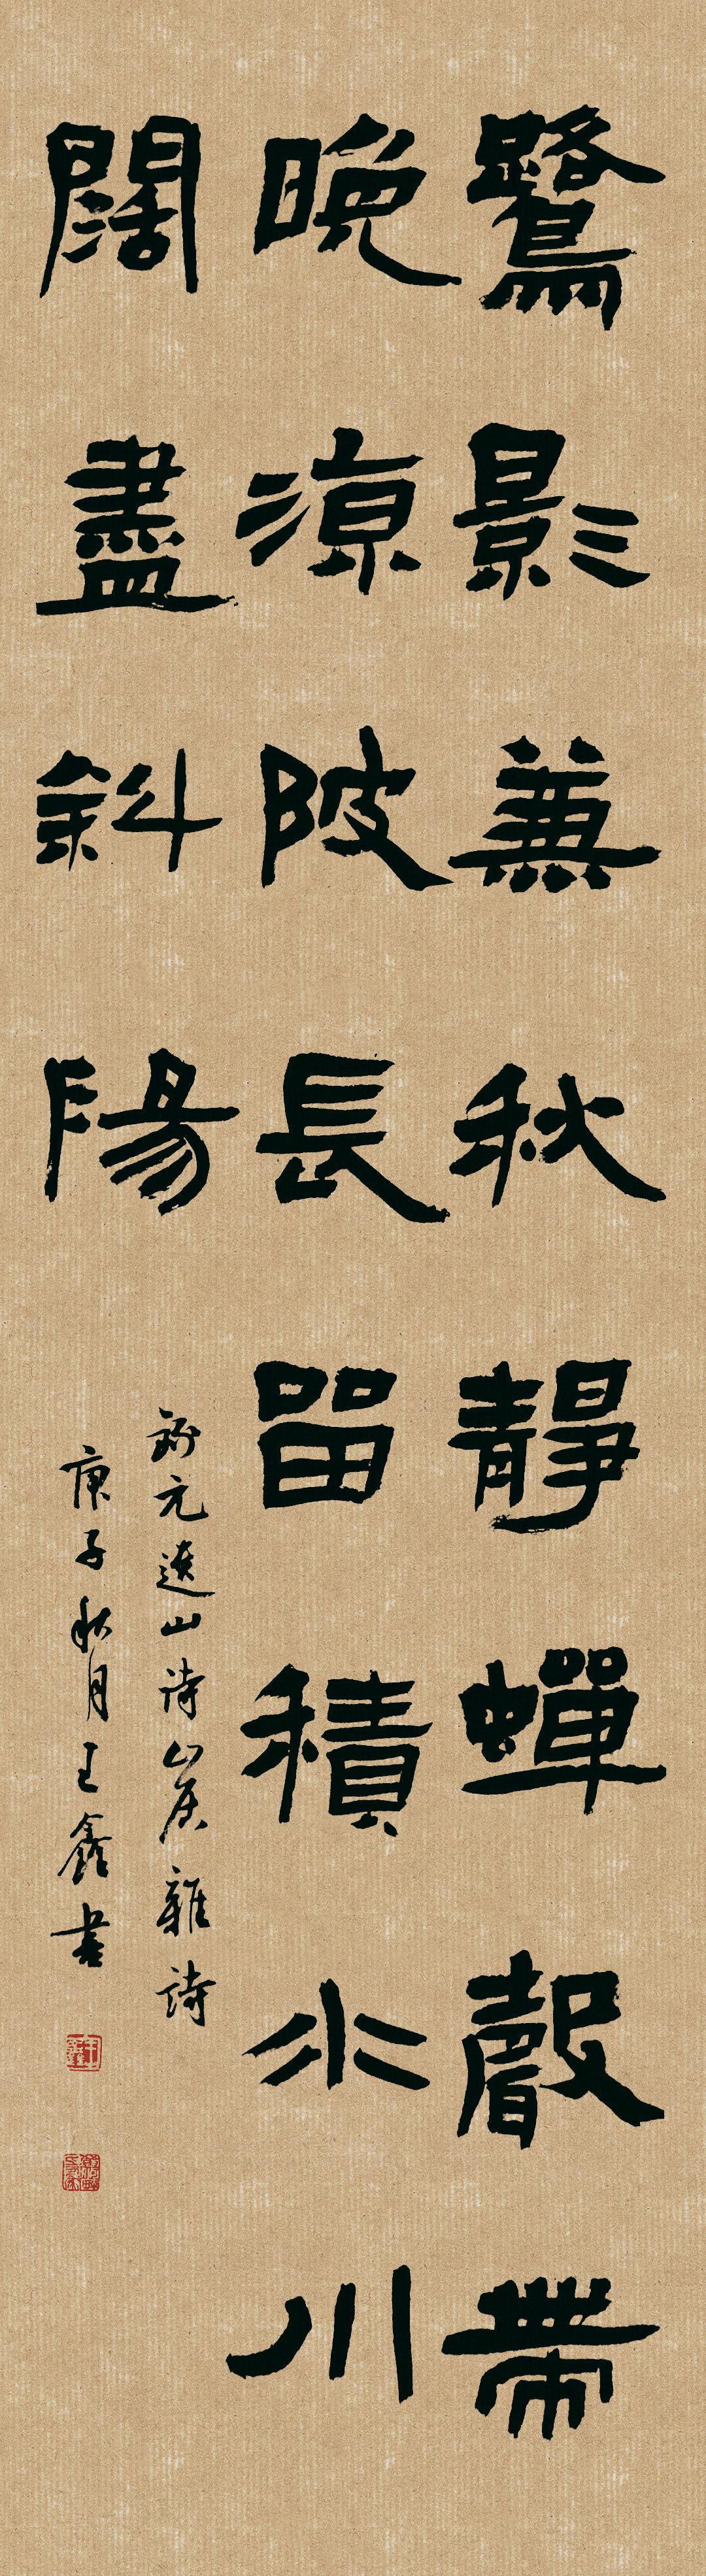 鷺影兼秋靜蟬聲帶
晚涼陂長留積水川
闊盡斜陽
錄元遺山詩山居雜詩
庚子秋月王鑫書